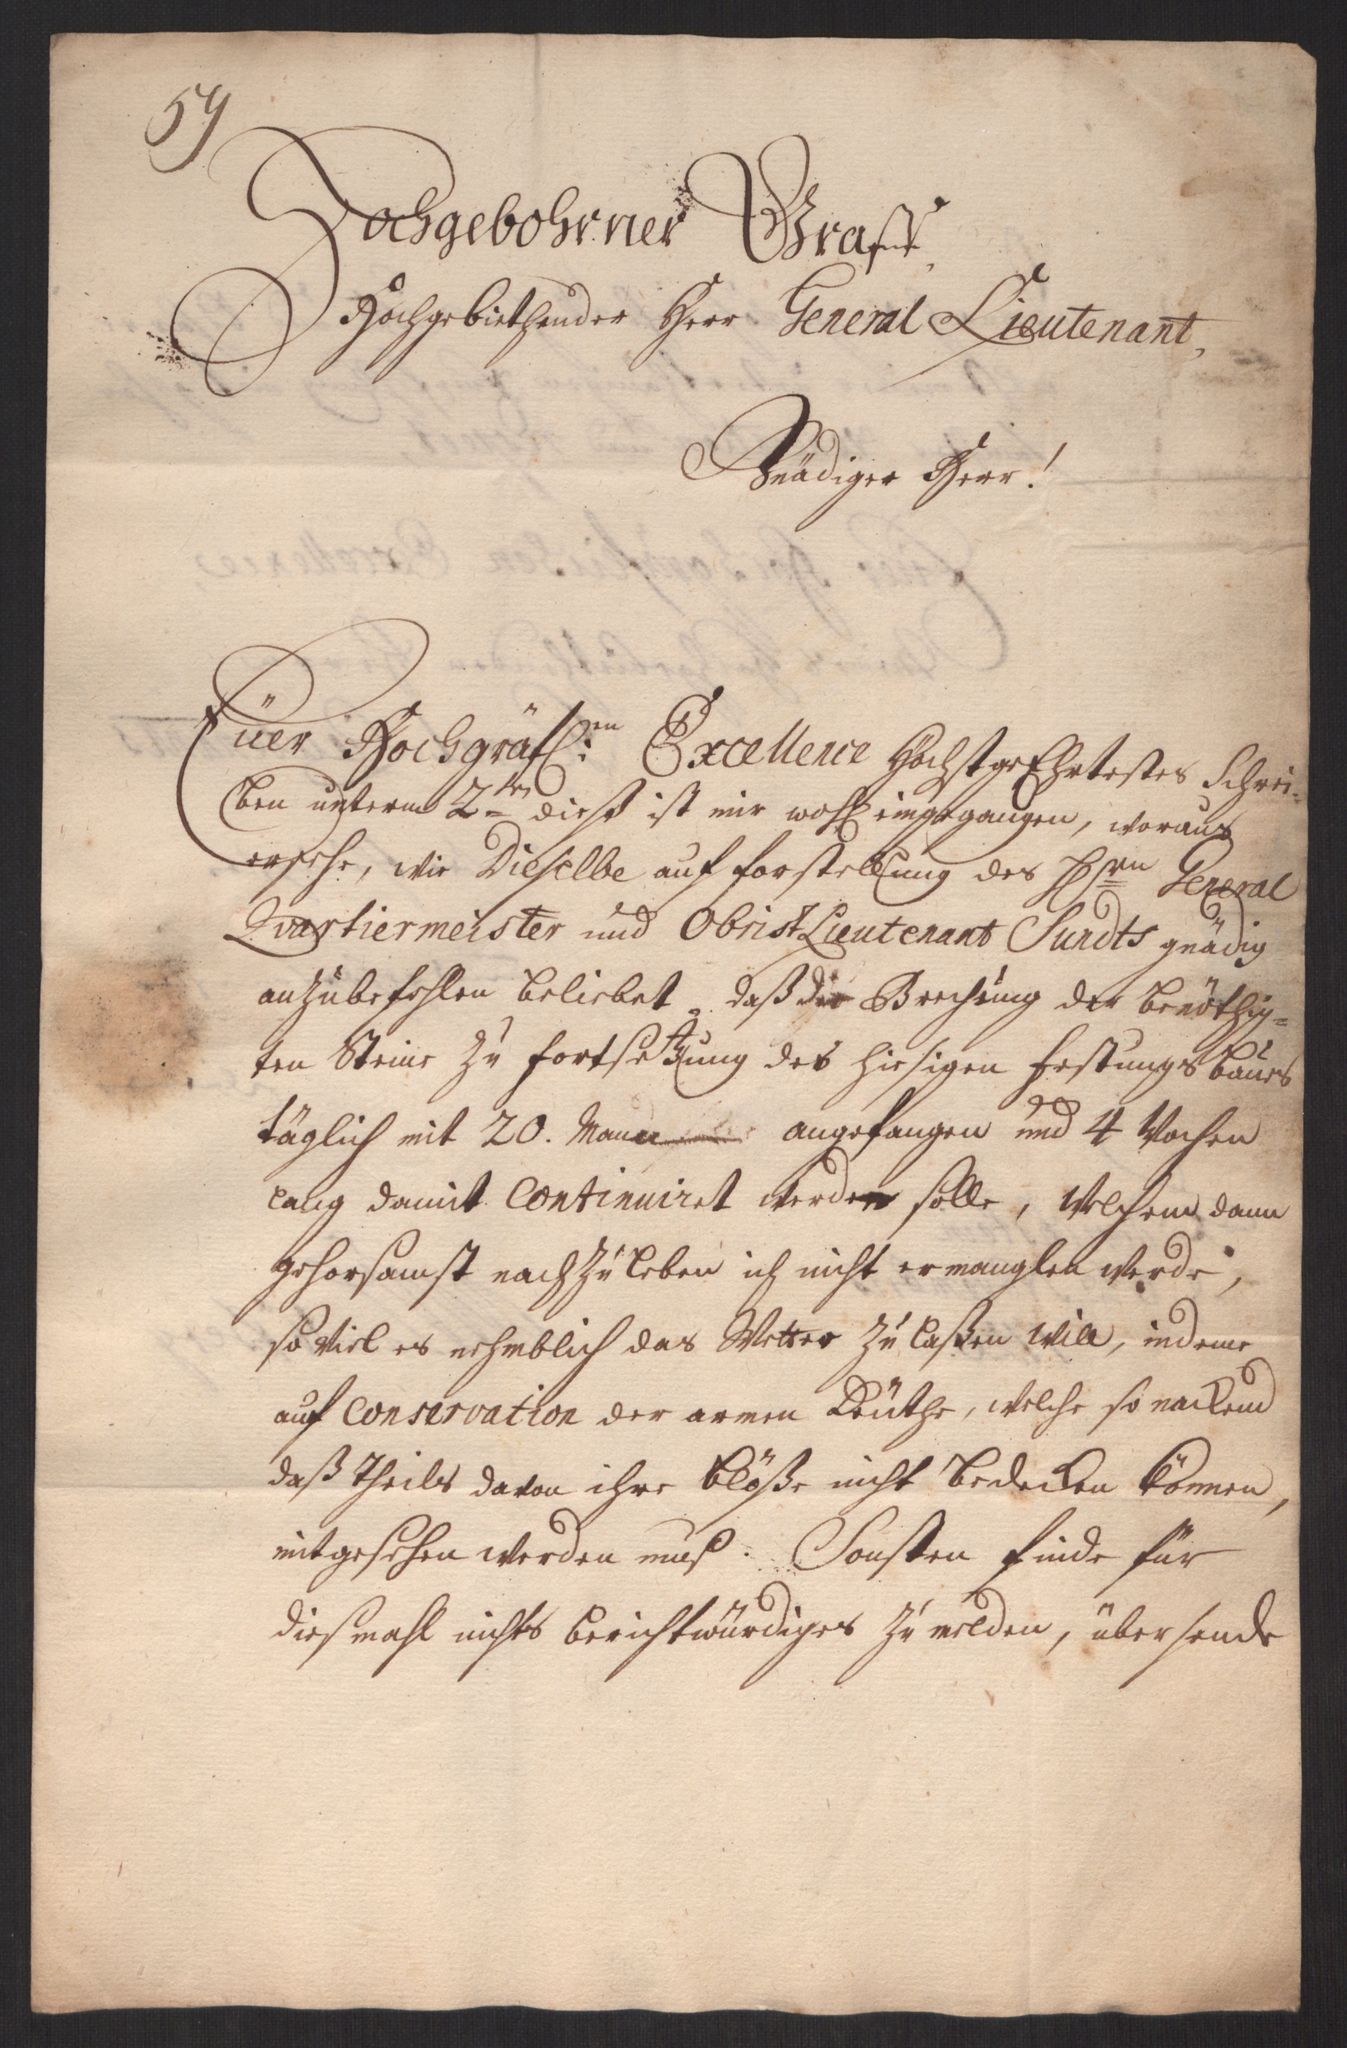 59
Hochgebohrner Graff,
Hochgebiethender Herr General Lieutenant,
Gnädiger Herr!
Eüer Hochgräfl:en Excellence Höchstgeehrtestes Schrei-
ben unterm 2ten dieß ist mir wohl eingegangen, woraus
ersehe, wie Dieselbe auf forstellung des Hrn General
Qvartiermeister und Obrist Lieutenant Sundts gnädig
anzubefehlen beliebet, daß die Brechung der benöthig-
ten Steine zu fortsetzung des hiesigen festungs baues
täglich mit 20. Mann angefangen und 4 Wochen
lang damit continuiret werden solle, Welchem dann
gehorsamst nachzuleben ich nicht ermanglen werde,
so viel es nehmblich das Wetter zu laßen will, indeme
auf conservation der armen Leüthe, welche so nackend
daß theils davon ihre blöße nicht bedecken können,
mitgesehen werden muß. Sonsten finde für
diesmahl nichts berichtwürdiges zu melden, übersende